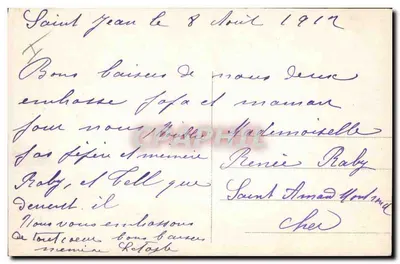 Saint Jean le 8 Août 1912
Bons baisers de nous deux
embrasse papa et maman
pour nous
Mademoiselle
pas pépère et memère
Renée Raby
Raby, et
que
Saint Amand Montrond
devient il
Cher
Nous vous embrassons
De tout coeur bons baisers
memère